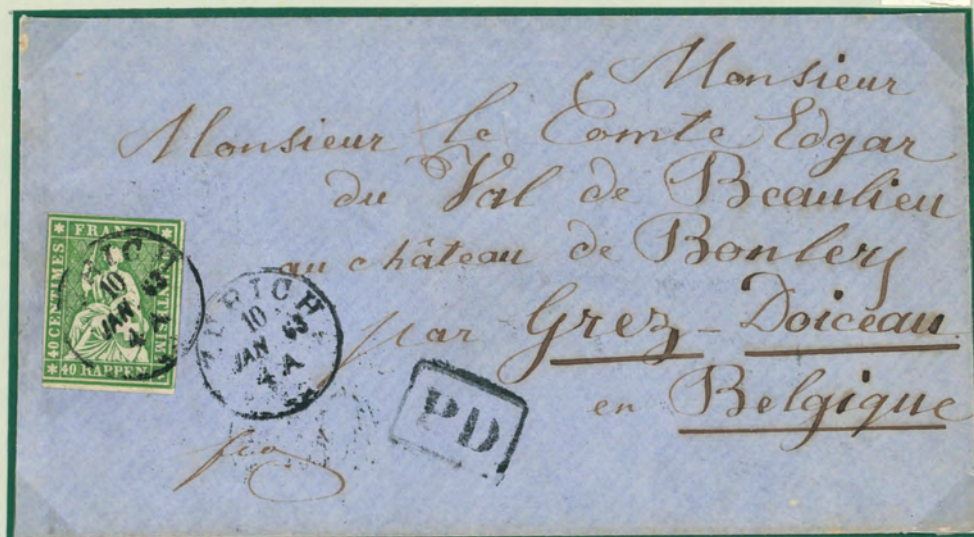 Monsieur
Monsieur le Comte Edgar
du Val de Beaulieu
au château de Bonlery
par Grez-Doiceau
en Belgique
fco
FRAN
40 CENTIMES
40 RAPPEN
10
JAN 63
4 A
ZÜRICH
10
JAN 63
4 A
PD